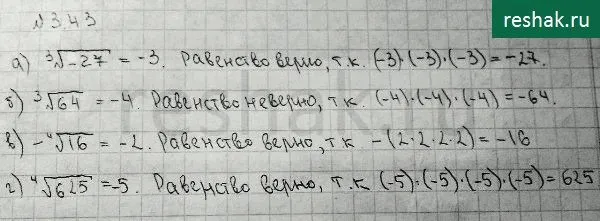 reshak.ru
№3.43
а) ³√-27 = -3. Равенство верно, т.к. (-3)·(-3)·(-3)=-27.
б) ³√64 = -4. Равенство неверно, т.к. (-4)·(-4)·(-4)=-64.
в) -⁴√16 = -2. Равенство верно, т.к -(2·2·2·2)=-16
г) ⁴√625 =-5. Равенство верно, т.к (-5)·(-5)·(-5)·(-5)=625